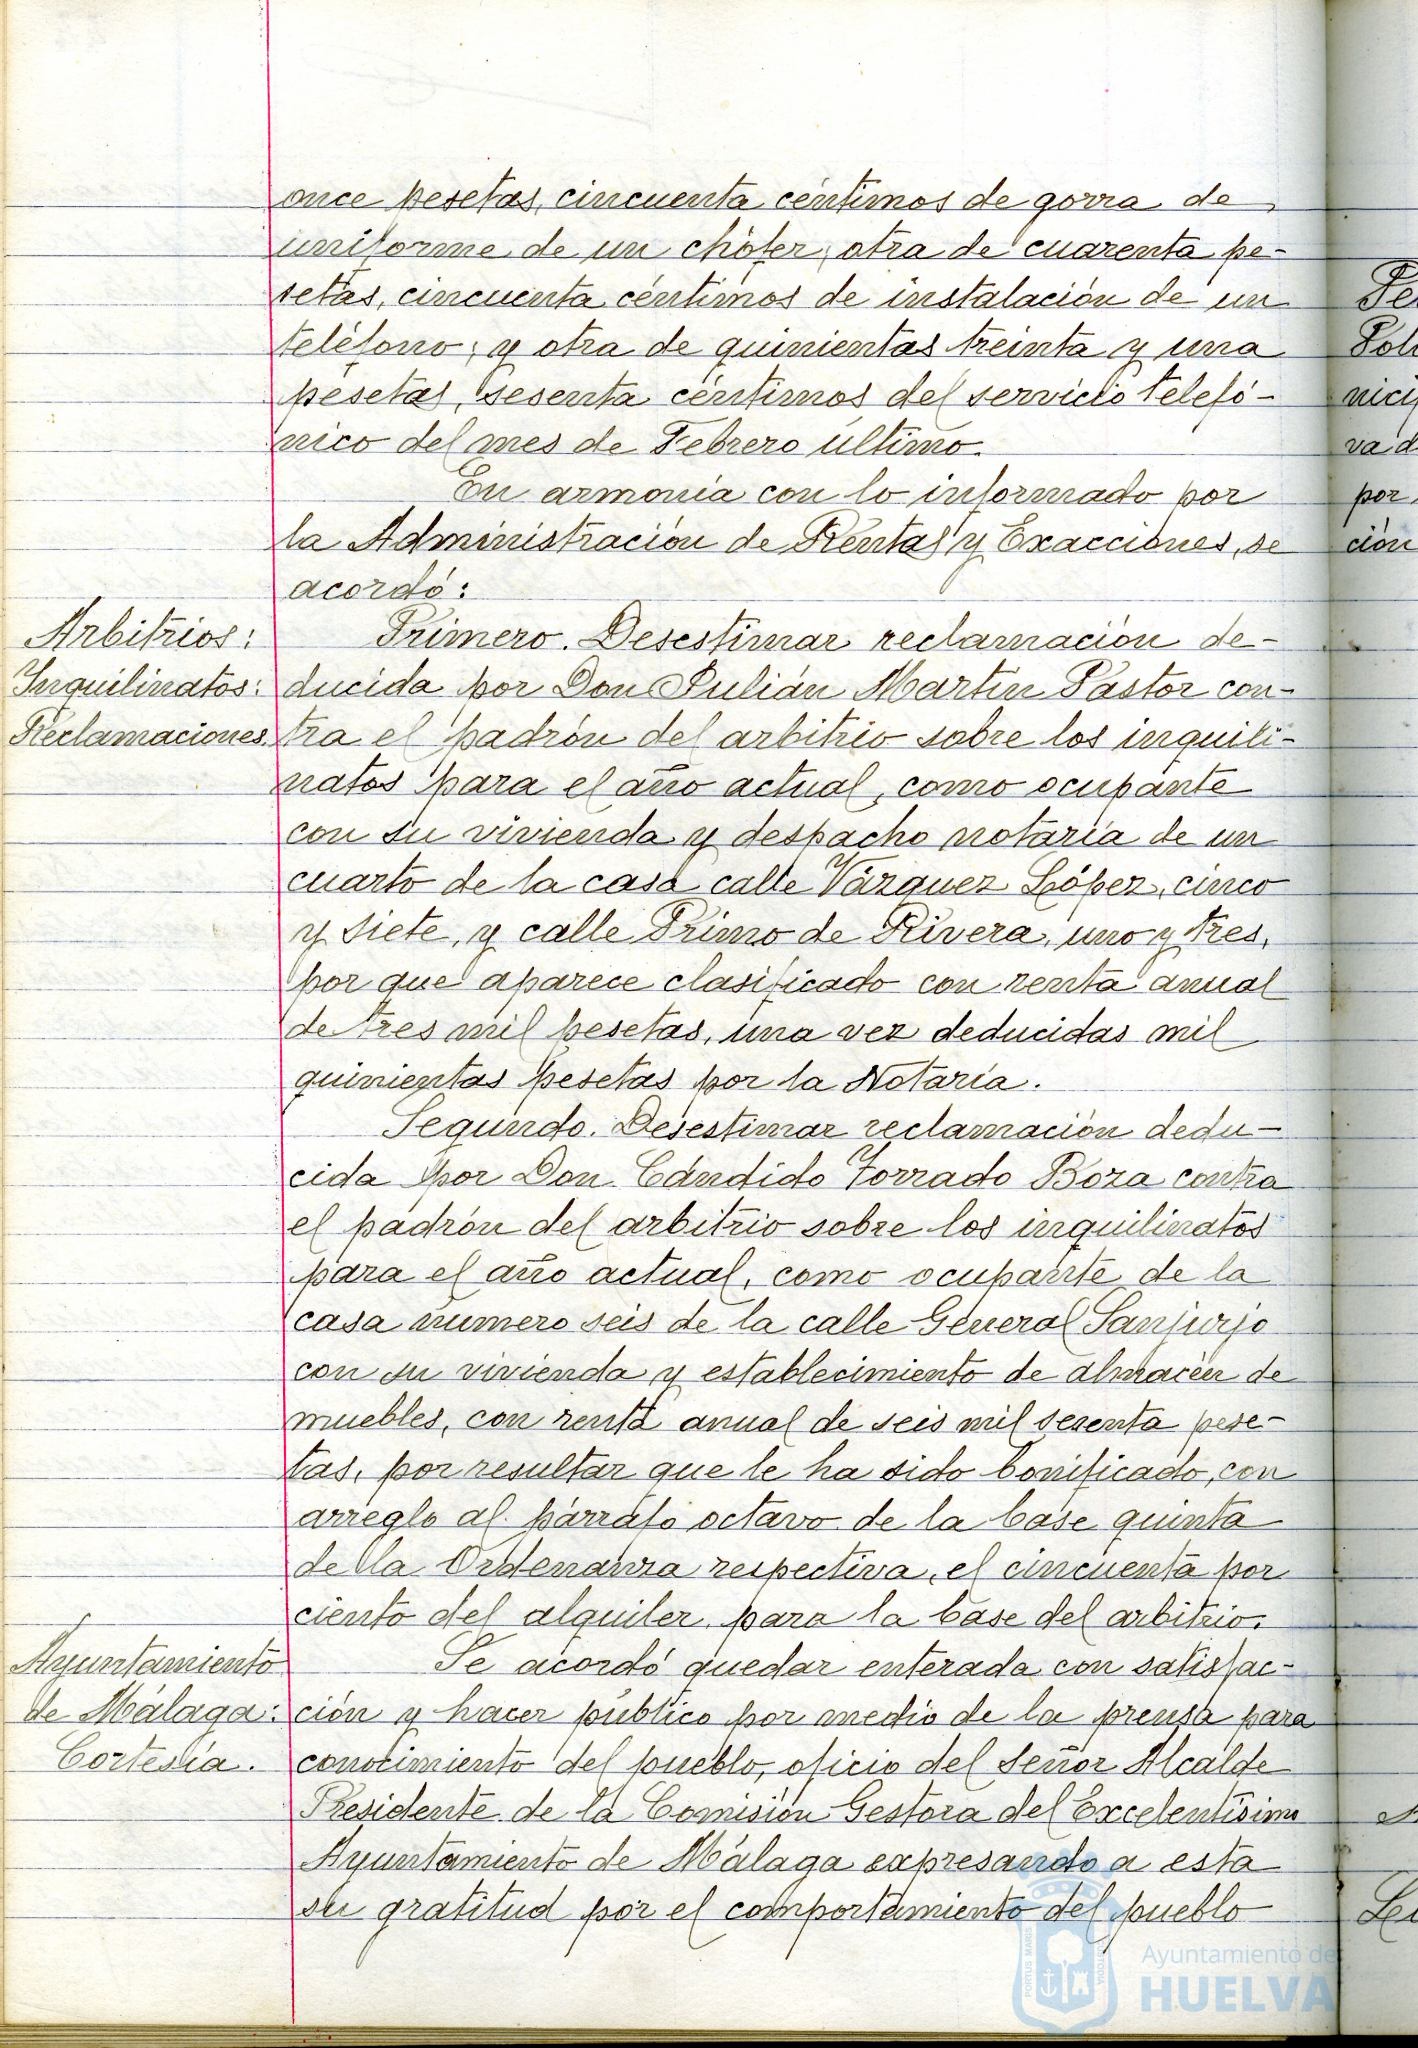 once pesetas, cincuenta céntimos de gorra de
uniforme de un chófer, otra de cuarenta pe-
setas, cincuenta céntimos de instalación de un
teléfono; y otra de quinientas treinta y una
pesetas, sesenta céntimos del servicio telefó-
nico del mes de Febrero último.
En armonía con lo informado por
la Administración de Rentas y Exacciones, se
acordó:
Arbitrios:
Inquilinatos:
Reclamaciones.
Primero. Desestimar reclamación de-
ducida por Don Julián Martín Pastor con-
tra el padrón del arbitrio sobre los inquili-
natos para el año actual, como ocupante
con su vivienda y despacho notaría de un
cuarto de la casa calle Vázquez López, cinco
y siete, y calle Primo de Rivera, uno y tres,
por que aparece clasificado con renta anual
de tres mil pesetas, una vez deducidas mil
quinientas pesetas por la Notaría.
Segundo. Desestimar reclamación dedu-
cida por Don Cándido Torrado Boza contra
el padrón del arbitrio sobre los inquilinatos
para el año actual, como ocupante de la
casa número seis de la calle General Sanjurjo
con su vivienda y establecimiento de almacén de
muebles, con renta anual de seis mil sesenta pese-
tas, por resultar que le ha sido bonificado, con
arreglo al párrafo octavo de la base quinta
de la Ordenanza respectiva, el cincuenta por
ciento del alquiler para la base del arbitrio.
Ayuntamiento
de Málaga:
Cortesía.
Se acordó quedar enterada con satisfac-
ción y hacer público por medio de la prensa para
conocimiento del pueblo, oficio del Señor Alcalde
Presidente de la Comisión Gestora del Excelentísimo
Ayuntamiento de Málaga expresando a esta
su gratitud por el comportamiento del pueblo
Pol
nici
va d
por
ción
Ayuntamiento de
HUELVA